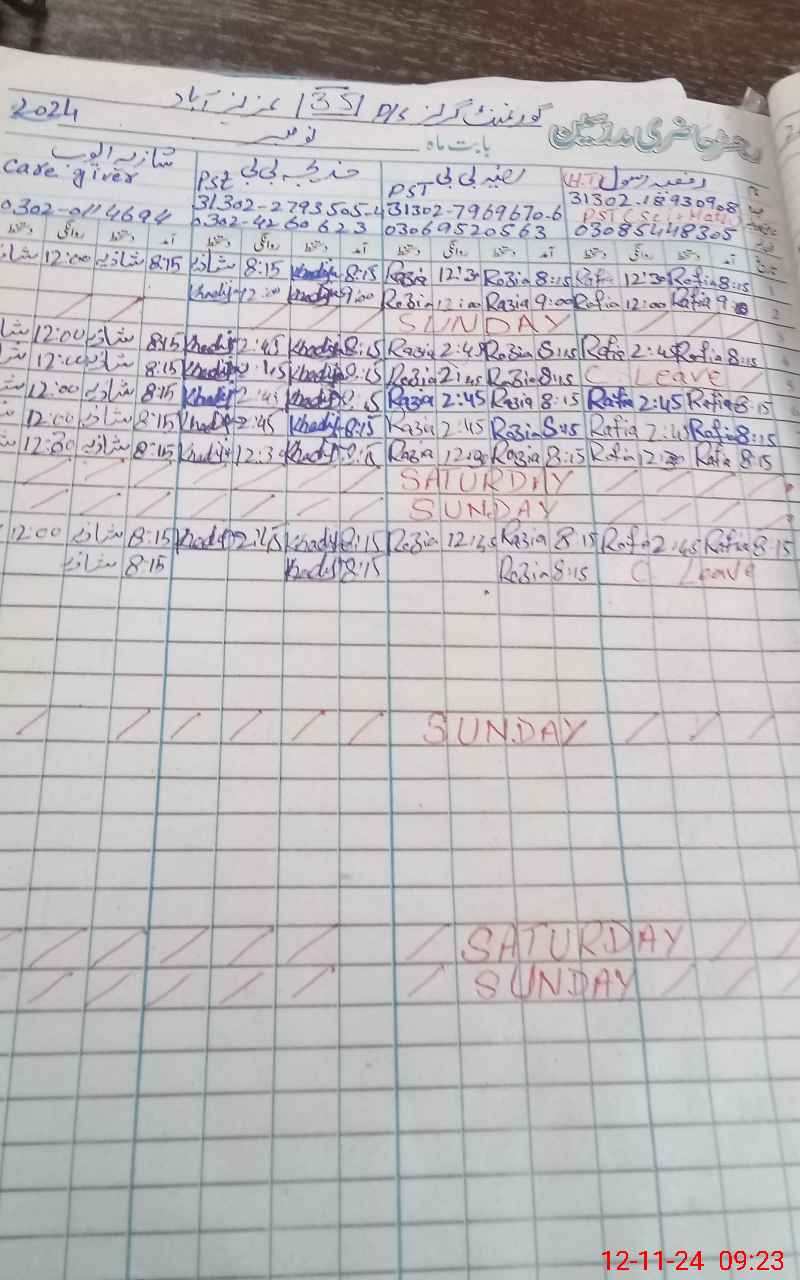 2024 گورنمنٹ گرلز P/S 135/ عزیز آباد
رجسٹر حاضری مدرسین بابت ماہ نومبر
رفعیہ رسول (H.T) رضیہ بی بی PST خدیجہ بی بی PST شازیہ ایوب care giver
31302-18930908 31302-7969670-6 31302-2793505-4
PST (Sci-Math)
03085448305 03069520563 0302-4260623 0302-0114694
Rafia 8:15 12:30 Razia 8:15 Razia 12:30 Khadija 8:15 8:15 شازیہ 8:15 شازیہ 12:00
Rafia 9:00 Rafia 12:00 Razia 9:00 Razia 12:00 Khadija 9:00 Khadija 12:00
SUNDAY
Rafia 8:15 Rafia 2:45 Razia 8:15 Razia 2:45 Khadija 8:15 Khadija 2:45 8:15 شازیہ 12:00
C. Leave Razia 8:15 Razia 2:45 Khadija 8:15 Khadija 2:45 8:15 شازیہ 12:00
Rafia 8:15 Rafia 2:45 Razia 8:15 Razia 2:45 Khadija 8:15 Khadija 2:45 8:15 شازیہ 12:00
Rafia 8:15 Rafia 2:45 Razia 8:45 Razia 2:45 Khadija 8:15 Khadija 2:45 8:15 شازیہ 12:00
Rafia 8:15 Rafia 12:30 Razia 8:15 Razia 12:30 Khadija 8:15 Khadija 12:30 8:15 شازیہ 12:00
SATURDAY
SUNDAY
Rafia 8:15 Rafia 2:45 Razia 8:15 Razia 12:45 Khadija 8:15 Khadija 2:45 8:15 شازیہ 12:00
C. Leave Razia 8:15 Khadija 8:15 8:15 شازیہ
SUNDAY
SATURDAY
SUNDAY
12-11-24 09:23